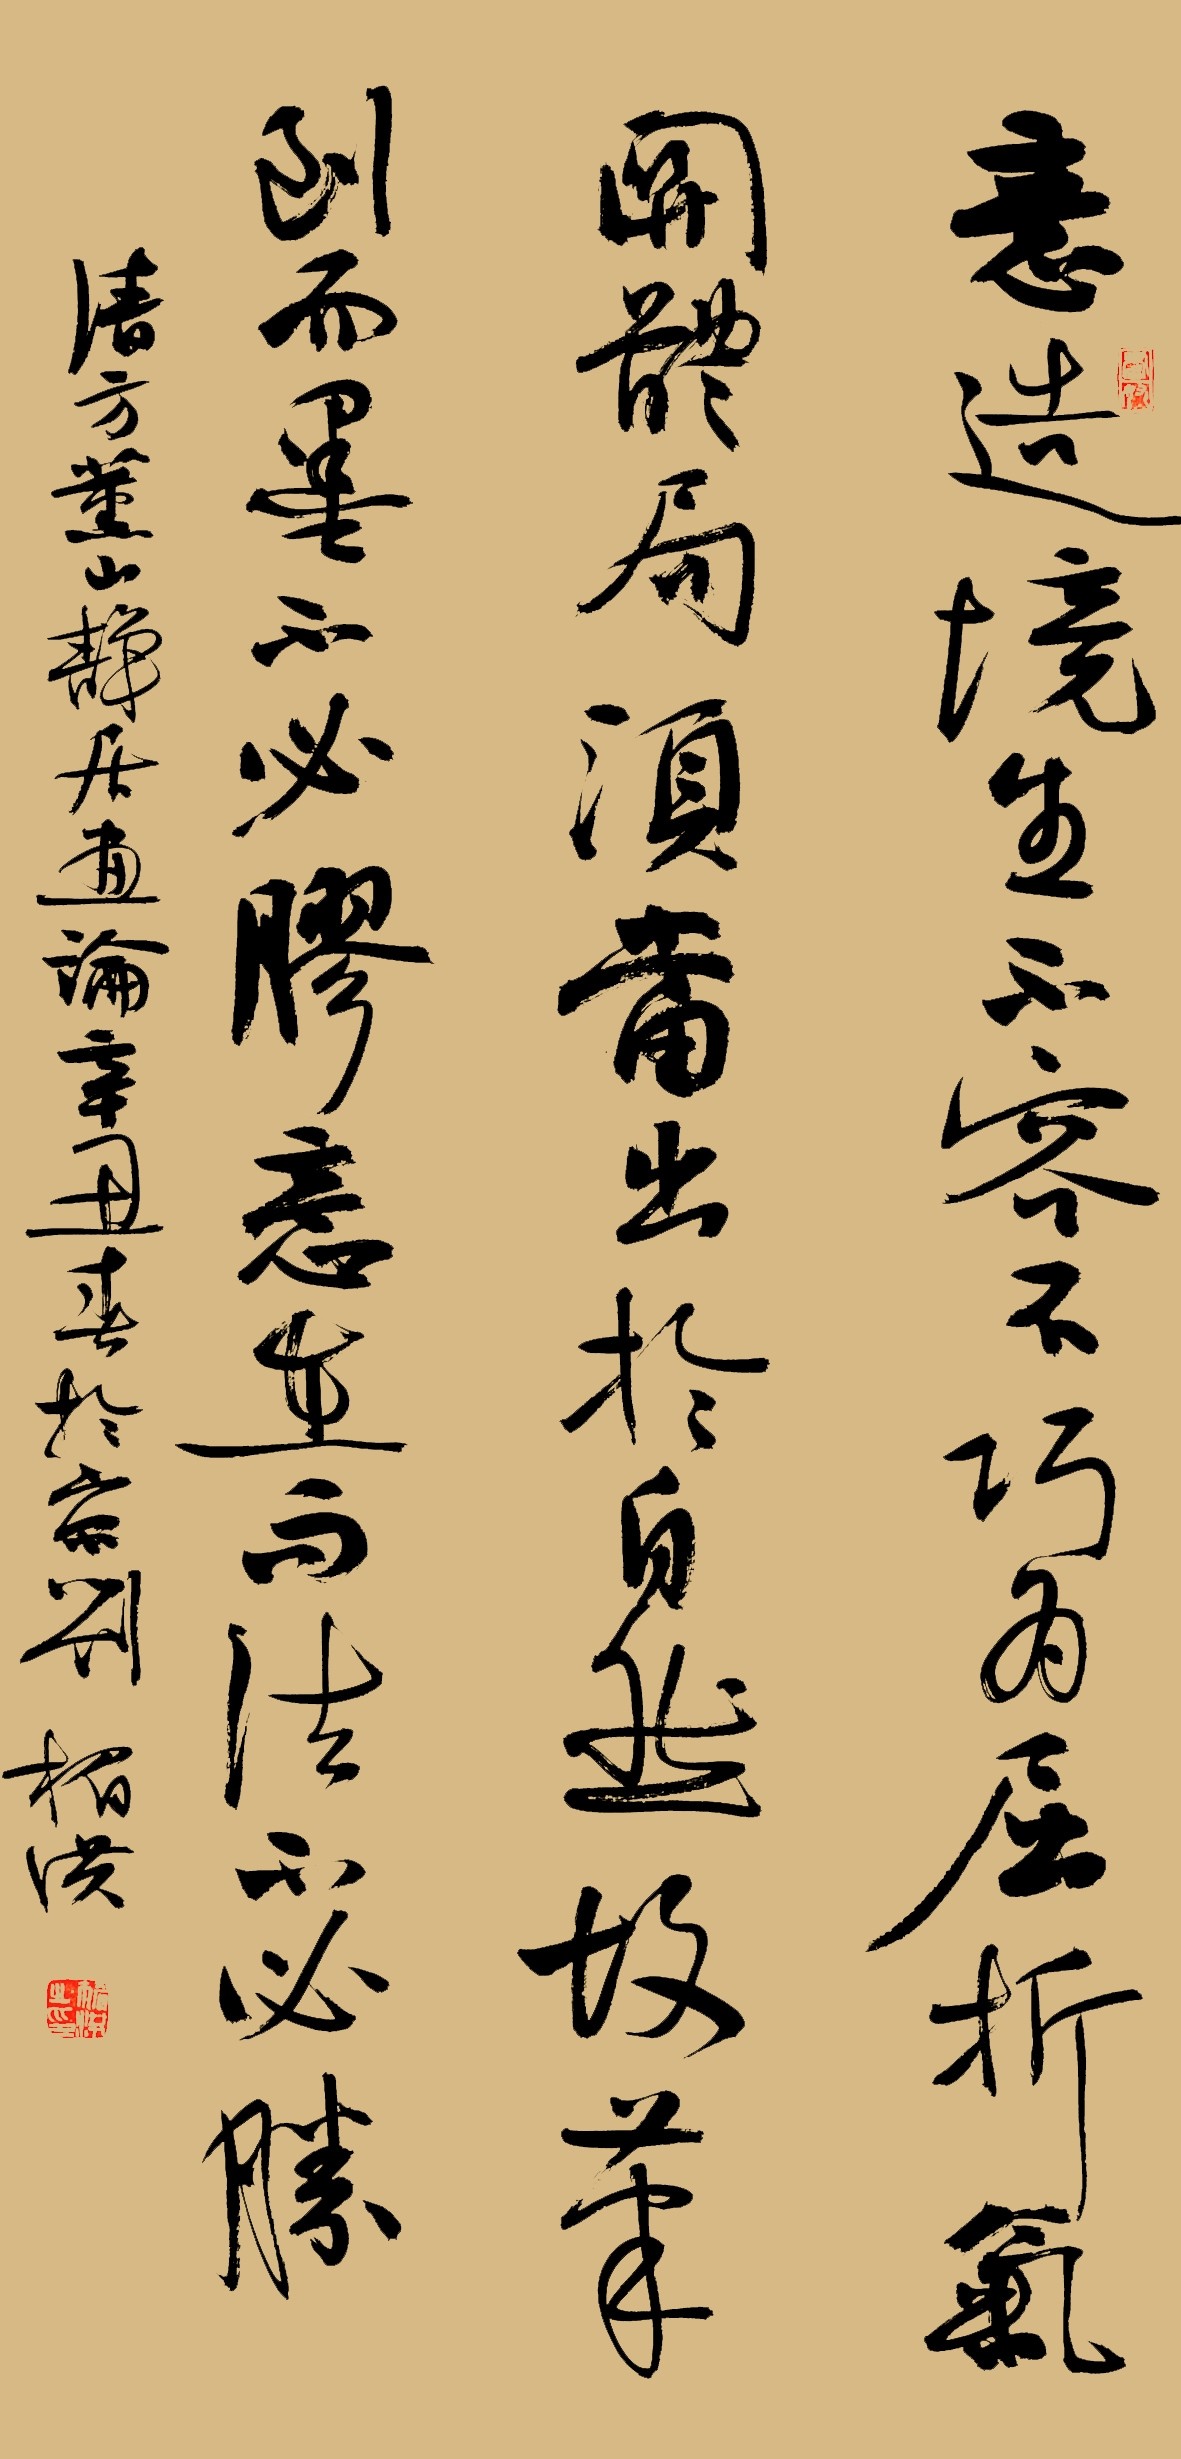 意造境生不容不巧為屈折氣
開體局須當出於自然故筆
到而墨不必膠意在而法不必勝
清方薰山靜居畫論辛丑春於京劉栢洪